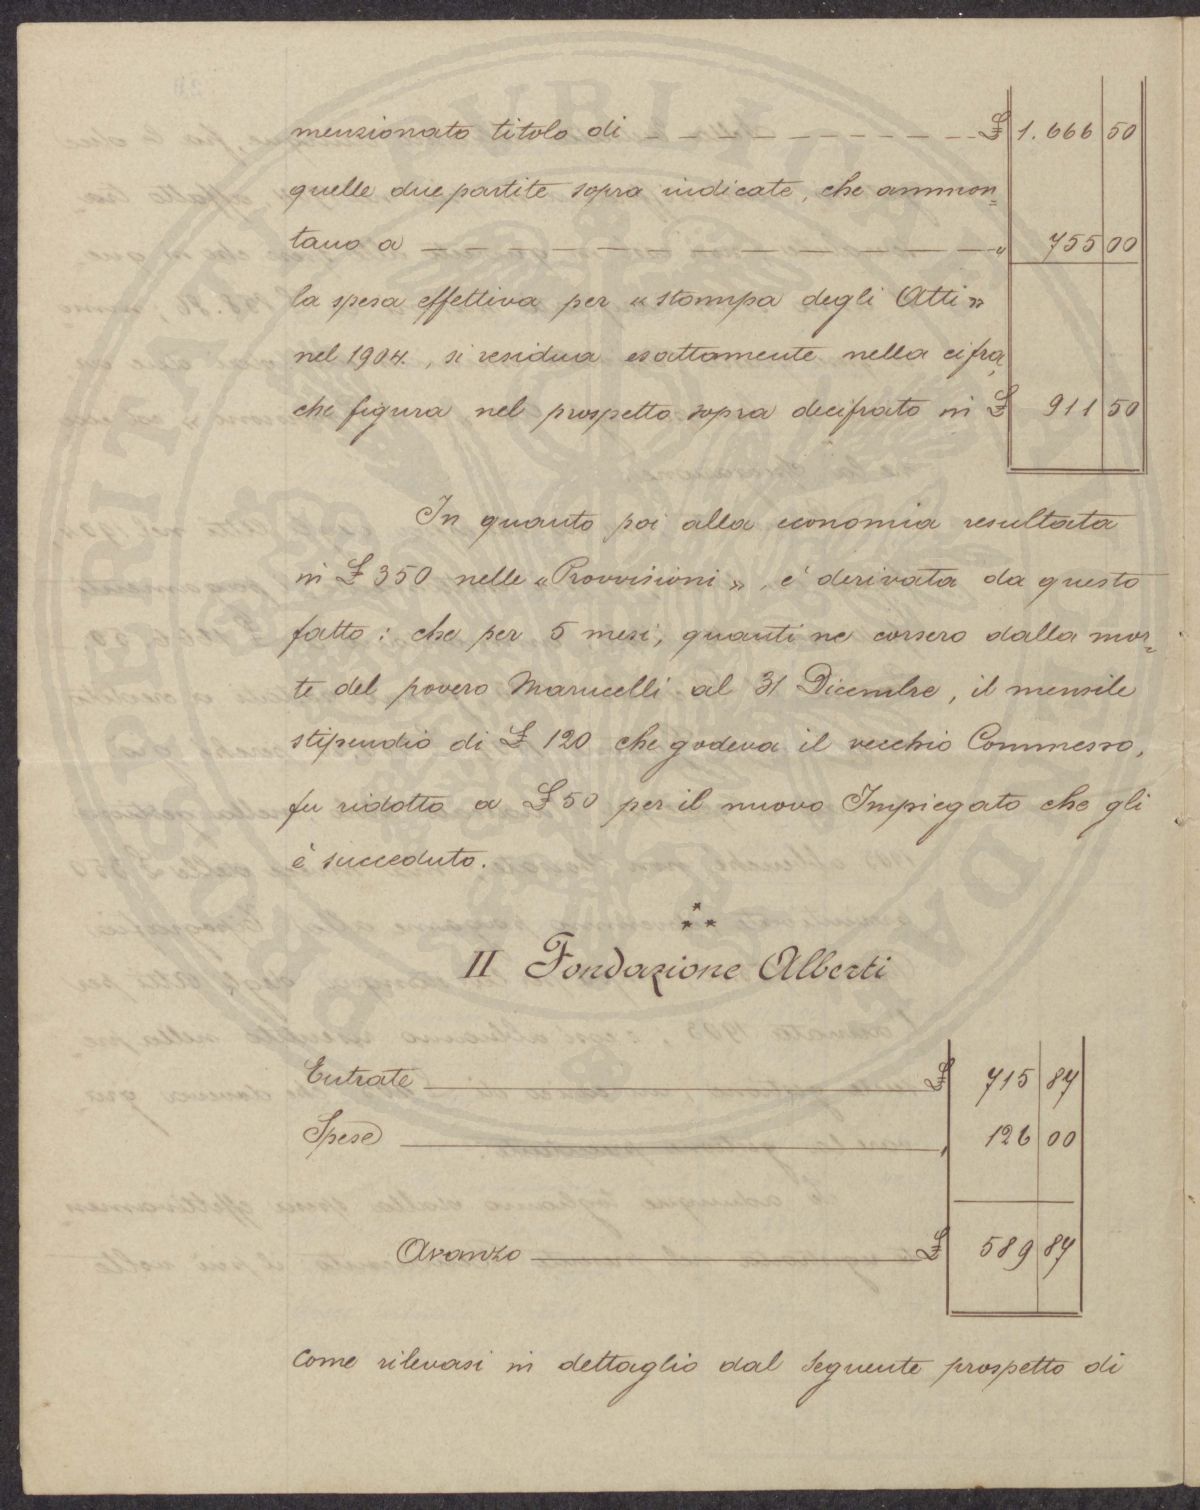 menzionato titolo di £ 1.666 50
quelle due partite sopra indicate, che ammon=
tano a " 755 00
la spesa effettiva per « stampa degli Atti »
nel 1904, si residua esattamente nella cifra,
che figura nel prospetto sopra decifrato in £ 911 50
In quanto poi alla economia resultata
in £ 350 nelle « Provvisioni », è derivata da questo
fatto: che per 5 mesi, quanti ne corsero dalla mor=
te del povero Marucelli al 31 Dicembre, il mensile
stipendio di £ 120 che godeva il vecchio Commesso,
fu ridotto a £ 50 per il nuovo Impiegato che gli
è succeduto.
* * *
II Fondazione Alberti
Entrate £ 715 87
Spese " 126 00
Avanzo £ 589 87
Come rilevasi in dettaglio dal seguente prospetto di